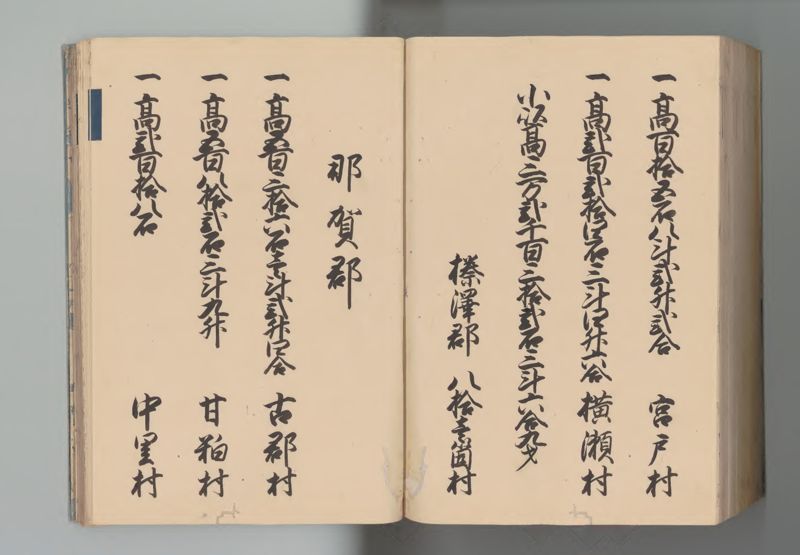 一 高百拾五石八斗弐升弐合 宮戸村
一 高弐百弐拾四石三斗四升六合 横瀬村
小以高三万弐千百三拾弐石三斗六合九才
榛澤郡 八拾壱箇村
那賀郡
一 高五百三拾六石壱斗弐升四合 古郡村
一 高五百八拾弐石三斗九升 甘粕村
一 高弐百拾八石 中里村